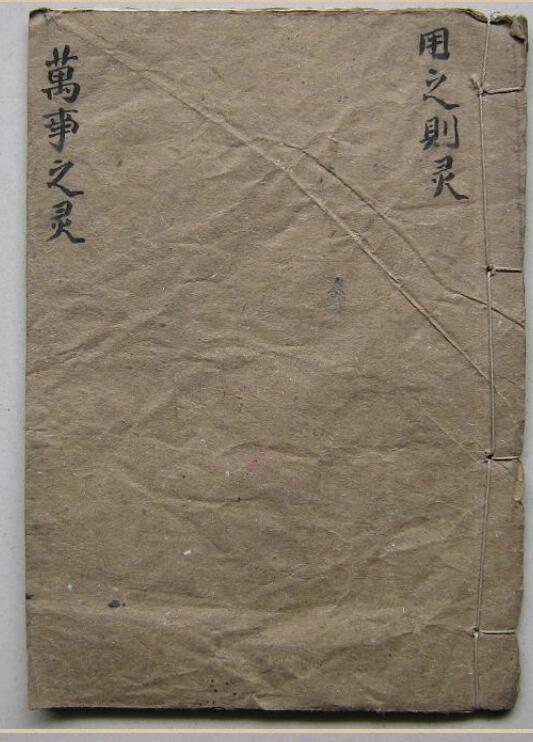 用之則灵
萬事之灵